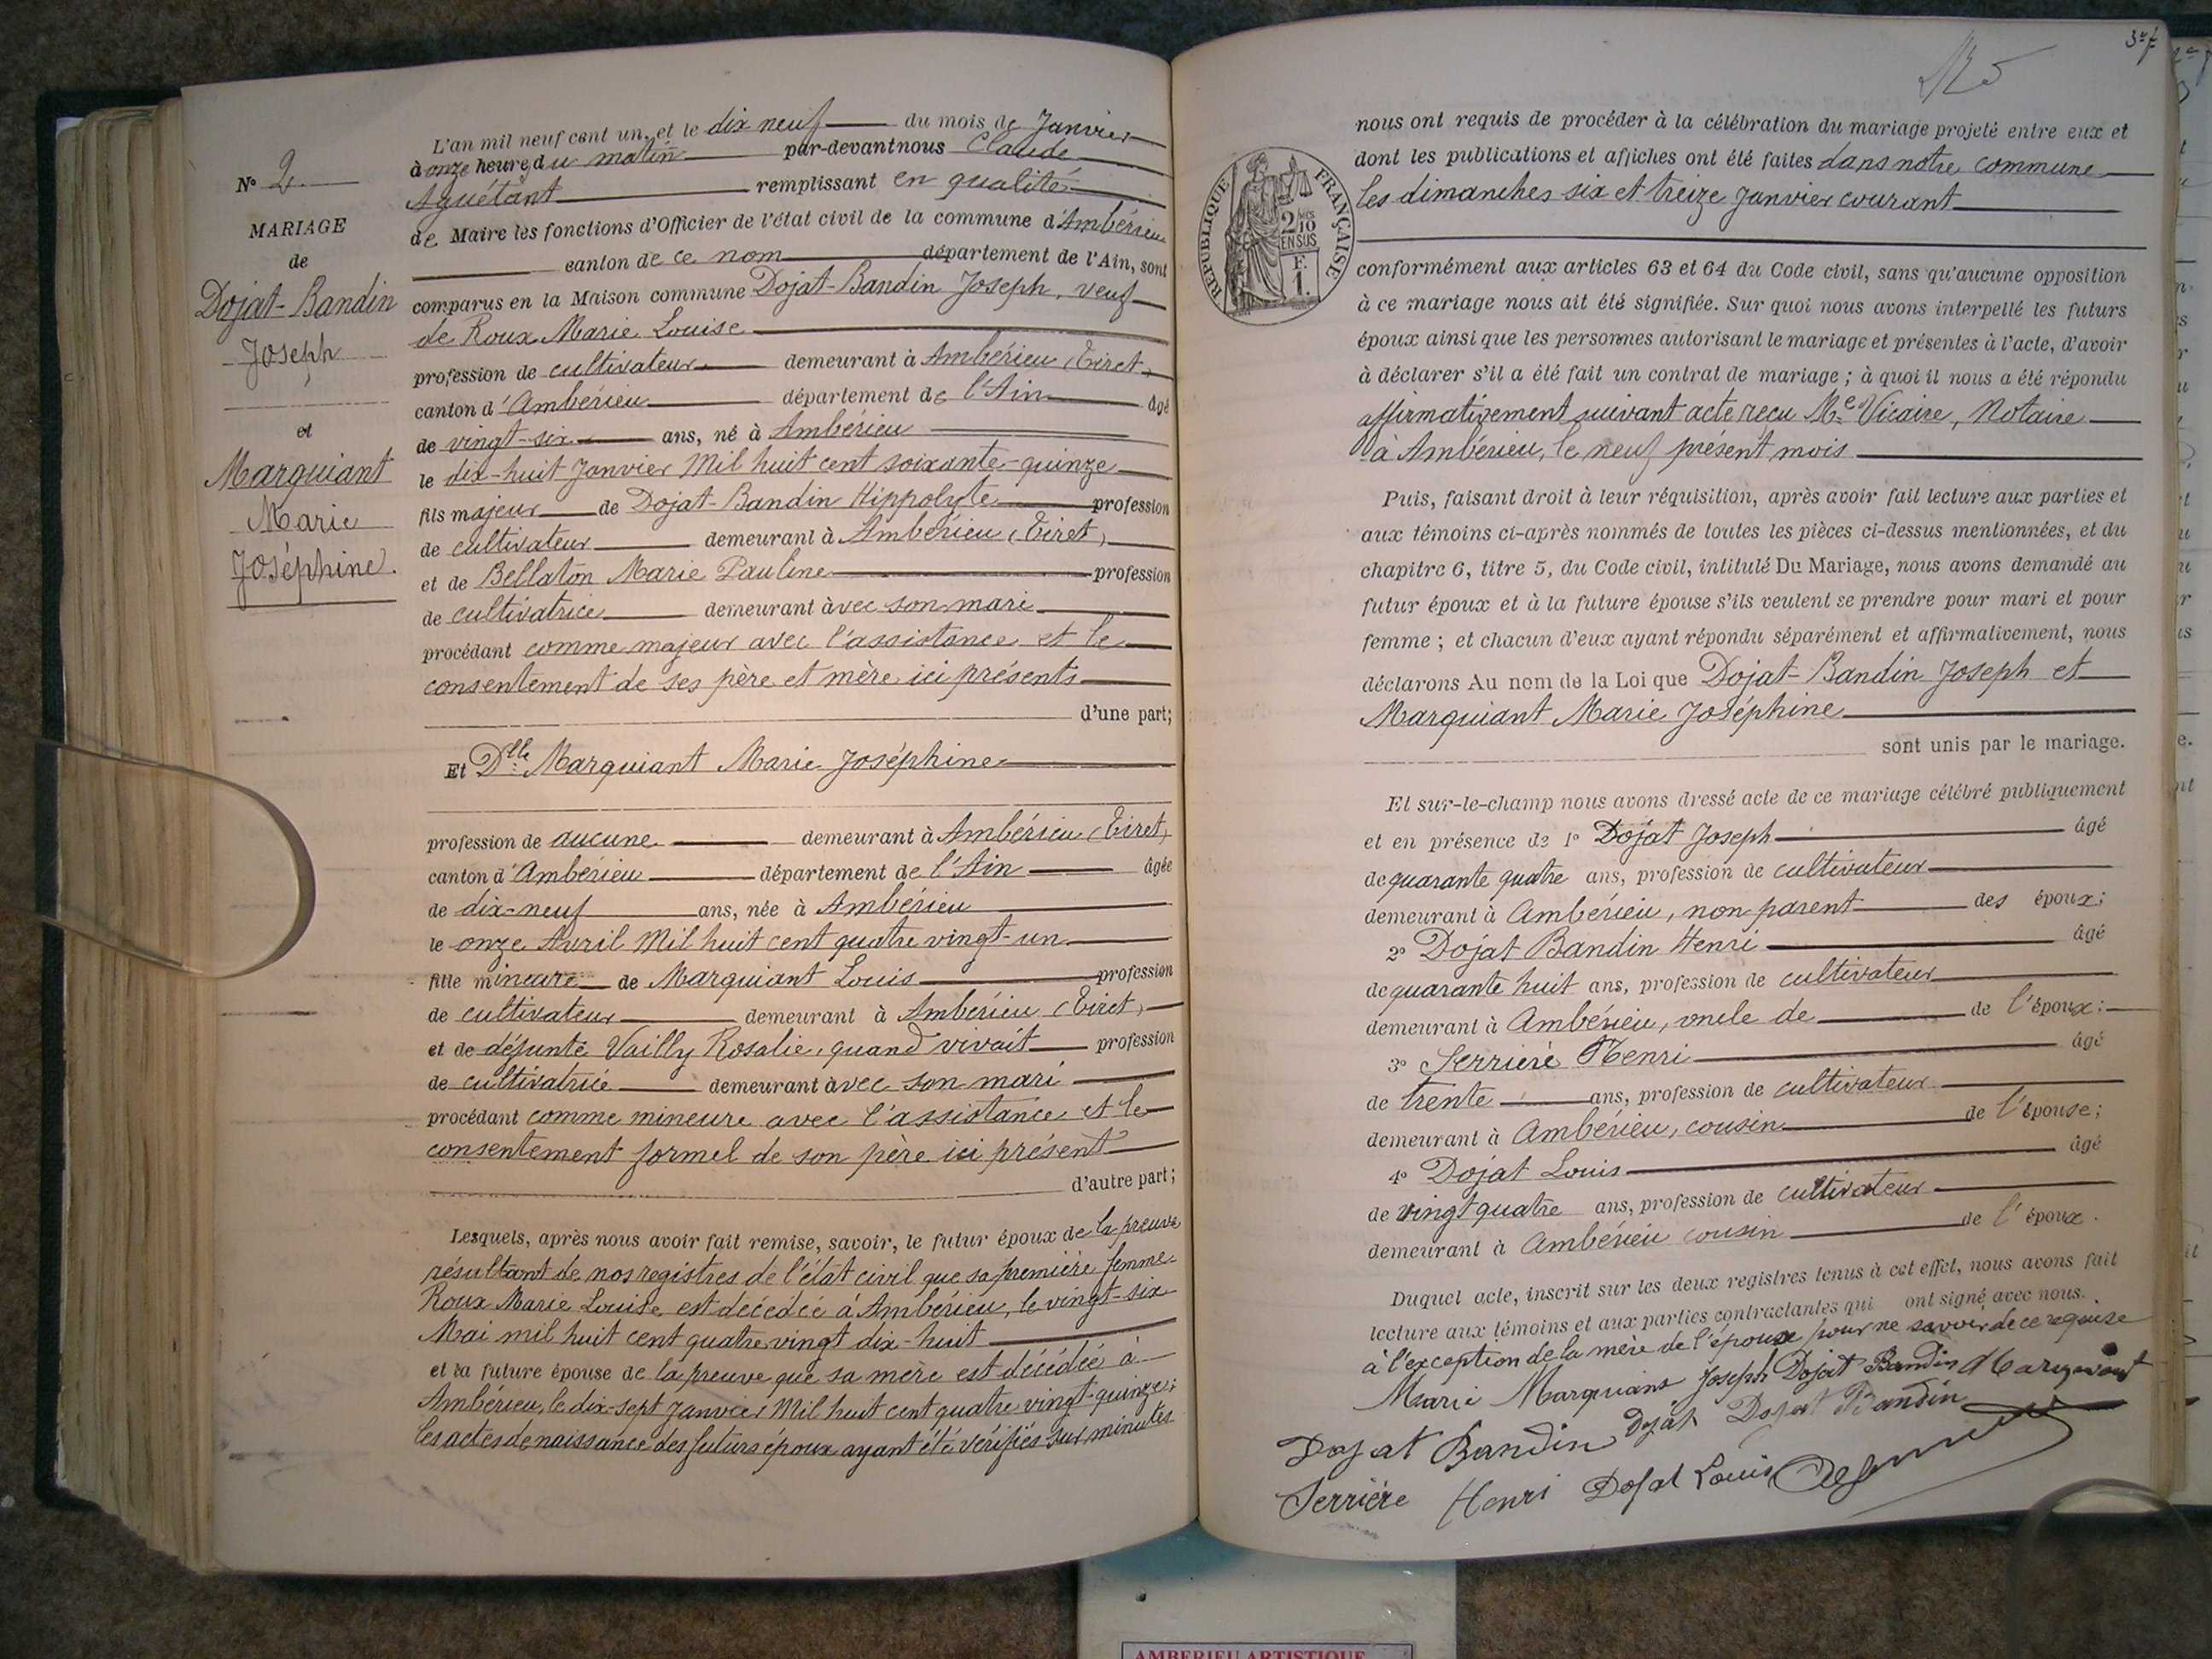 N° 2.
MARIAGE
de
Dojat-Bandin
Joseph
et
Marquiant
Marie
Joséphine.
L'an mil neuf cent un, et le dix neuf du mois de Janvier
à onze heures du matin par-devant nous Claude
Aguétant remplissant en qualité
de Maire les fonctions d'Officier de l'état civil de la commune d'Ambérieu
canton de ce nom département de l'Ain, sont
comparus en la Maison commune Dojat-Bandin Joseph, veuf
de Roux Marie Louise
profession de cultivateur demeurant à Ambérieu (Tiret)
canton d'Ambérieu département de l'Ain âgé
de vingt-six ans, né à Ambérieu
le dix-huit Janvier Mil huit cent soixante-quinze
fils majeur de Dojat-Bandin Hippolyte profession
de cultivateur demeurant à Ambérieu (Tiret)
et de Bellaton Marie Pauline profession
de cultivatrice demeurant avec son mari
procédant comme majeur avec l'assistance et le
consentement de ses père et mère ici présents
d'une part;
Et Dlle Marquiant Marie Joséphine
profession de aucune demeurant à Ambérieu (Tiret)
canton d'Ambérieu département de l'Ain âgée
de dix-neuf ans, née à Ambérieu
le onze Avril Mil huit cent quatre vingt-un
fille mineure de Marquiant Louis profession
de cultivateur demeurant à Ambérieu (Tiret)
et de défunte Vailly Rosalie, quand vivait profession
de cultivatrice demeurant avec son mari
procédant comme mineure avec l'assistance et le
consentement formel de son père ici présent
d'autre part;
Lesquels, après nous avoir fait remise, savoir, le futur époux de la preuve
résultant de nos registres de l'état civil que sa première femme
Roux Marie Louise est décédée à Ambérieu, le vingt-six
Mai mil huit cent quatre vingt dix-huit
et la future épouse de la preuve que sa mère est décédée à
Ambérieu, le dix-sept Janvier Mil huit cent quatre vingt-quinze;
les actes de naissance des futurs époux ayant été vérifiés sur minutes
nous ont requis de procéder à la célébration du mariage projeté entre eux et
dont les publications et affiches ont été faites dans notre commune
les dimanches six et treize Janvier courant
RÉPUBLIQUE FRANÇAISE
2/10
EN SUS
F.
1.
conformément aux articles 63 et 64 du Code civil, sans qu'aucune opposition
à ce mariage nous ait été signifiée. Sur quoi nous avons interpellé les futurs
époux ainsi que les personnes autorisant le mariage et présentes à l'acte, d'avoir
à déclarer s'il a été fait un contrat de mariage; à quoi il nous a été répondu
affirmativement suivant acte recu Me Vicaire, Notaire
à Ambérieu, le neuf présent mois
Puis, faisant droit à leur réquisition, après avoir fait lecture aux parties et
aux témoins ci-après nommés de toutes les pièces ci-dessus mentionnées, et du
chapitre 6, titre 5, du Code civil, intitulé Du Mariage, nous avons demandé au
futur époux et à la future épouse s'ils veulent se prendre pour mari et pour
femme; et chacun d'eux ayant répondu séparément et affirmativement, nous
déclarons Au nom de la Loi que Dojat-Bandin Joseph et
Marquiant Marie Joséphine
sont unis par le mariage.
Et sur-le-champ nous avons dressé acte de ce mariage célébré publiquement
et en présence de 1° Dojat Joseph âgé
de quarante quatre ans, profession de cultivateur
demeurant à Ambérieu, non parent des époux;
2° Dojat Bandin Henri âgé
de quarante huit ans, profession de cultivateur
demeurant à Ambérieu, oncle de de l'époux;
3° Serrière Henri âgé
de trente ans, profession de cultivateur
demeurant à Ambérieu, cousin de l'épouse;
4° Dojat Louis âgé
de vingt quatre ans, profession de cultivateur
demeurant à Ambérieu cousin de l'époux.
Duquel acte, inscrit sur les deux registres tenus à cet effet, nous avons fait
lecture aux témoins et aux parties contractantes qui ont signé avec nous.
à l'exception de la mère de l'époux pour ne savoir de ce requise
Marie Marquiant Joseph Dojat Bandin Marquiant
Dojat Bandin Dojat Dojat Bandin
Serrière Henri Dojat Louis
AMBERIEU ARTISTIQUE